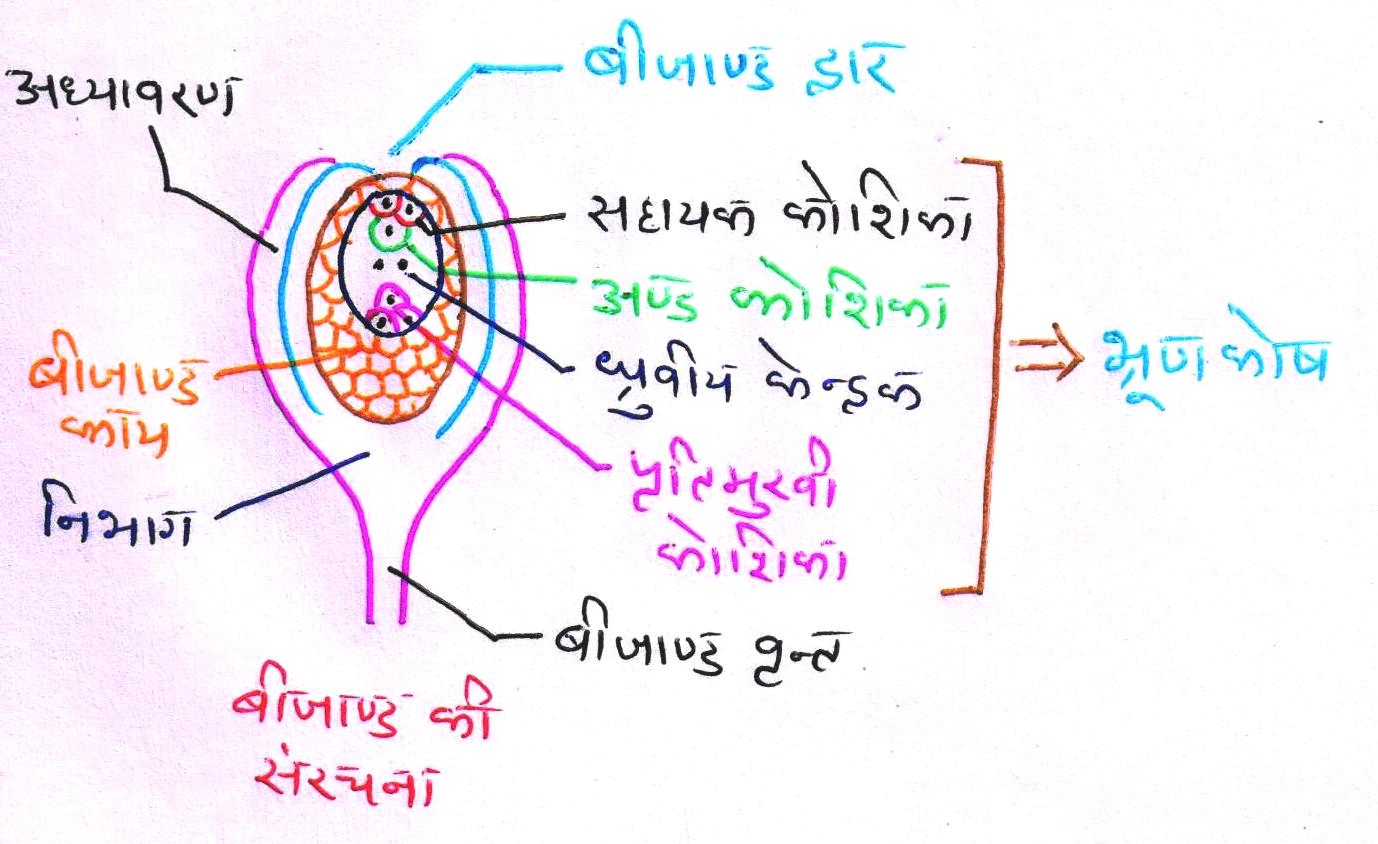 बीजाण्ड द्वार
अध्यावरण
सहायक कोशिका
अण्ड कोशिका
ध्रुवीय केन्द्रक
भ्रूणकोष
बीजाण्ड
काय
प्रतिमुखी
कोशिका
निभाग
बीजाण्ड वृन्त
बीजाण्ड की
संरचना